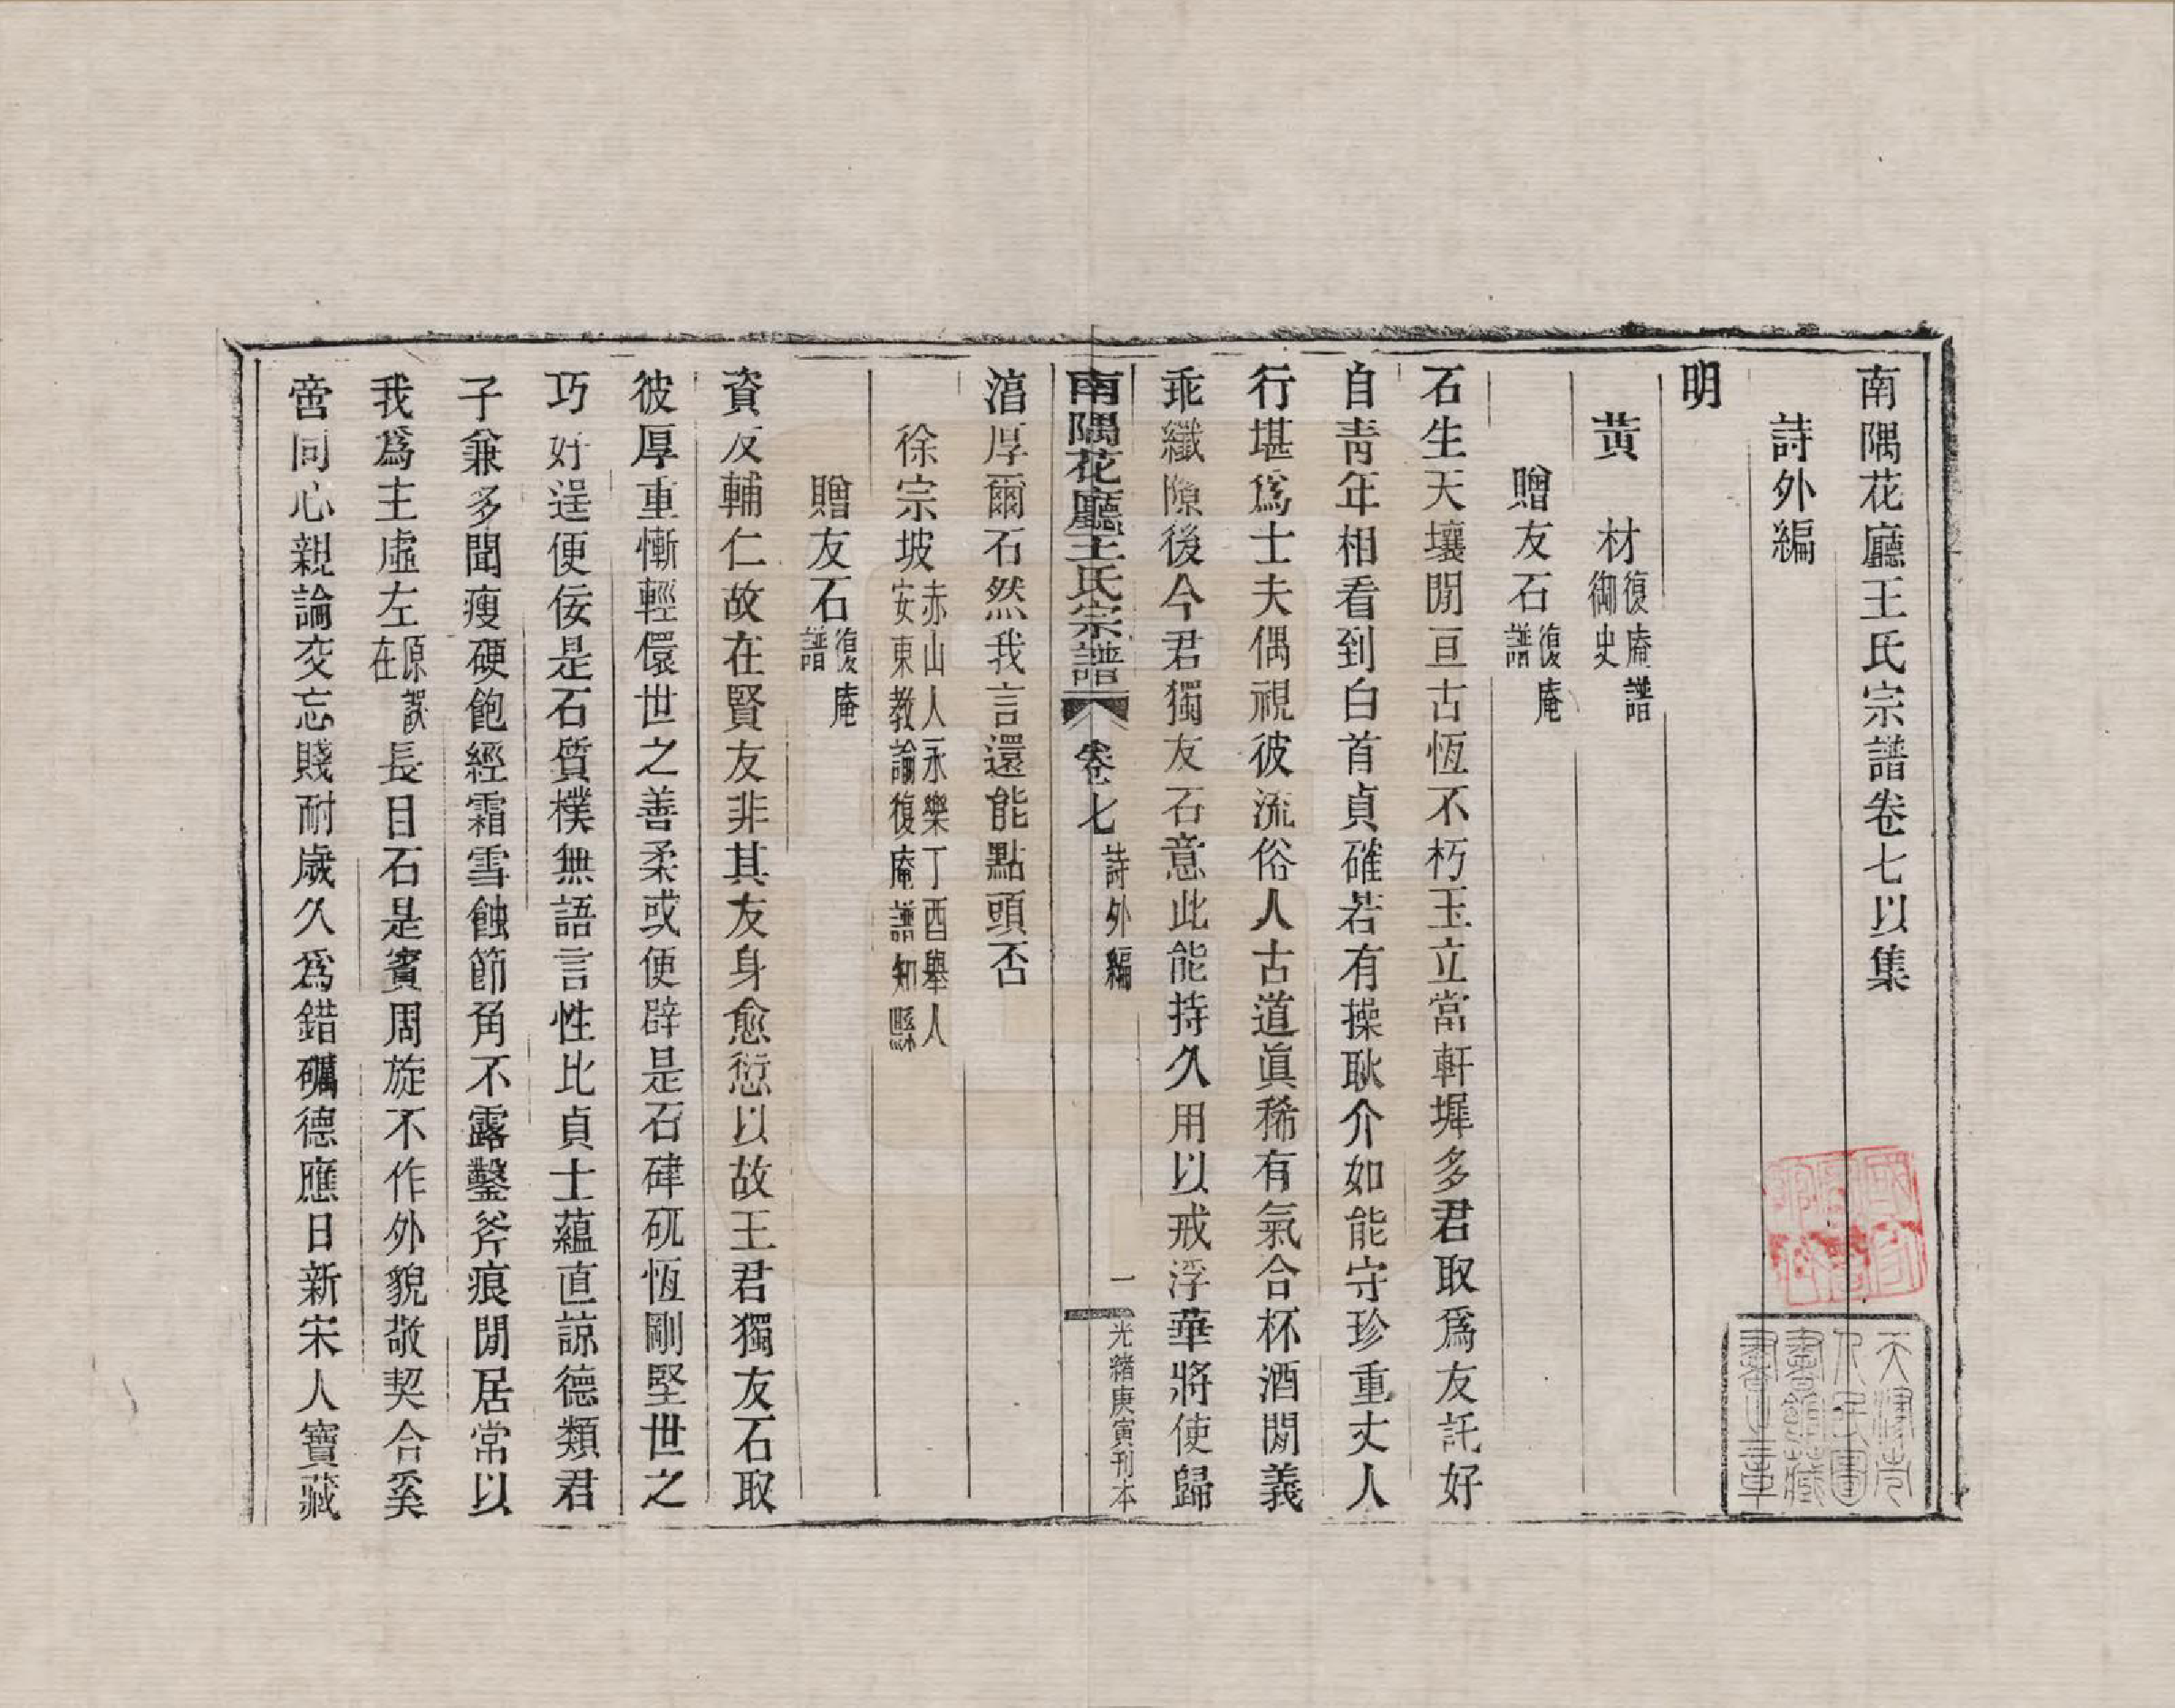 南隅花廳王氏宗譜卷七以集
詩外編
明
黃 材復庵譜御史
贈友石復庵譜
石生天壤閒亘古恆不朽玉立當軒墀多君取爲友託好
自靑年相看到白首貞確若有操耿介如能守珍重丈人
行堪爲士夫偶視彼流俗人古道眞稀有氣合杯酒閒義
乖纖隙後今君獨友石意此能持久用以戒浮華將使歸
湻厚爾石然我言還能點頭否
南隅花廳王氏宗譜 卷七 詩外編 一 光緒庚寅刊本
徐宗坡赤山人永樂丁酉舉人安東教諭復庵譜知縣
贈友石復庵譜
資友輔仁故在賢友非其友身愈愆以故王君獨友石取
彼厚重慚輕儇世之善柔或便辟是石硉矹恆剛堅世之
巧好逞便佞是石質樸無語言性比貞士蘊直諒德類君
子兼多聞瘦硬飽經霜雪蝕節角不露鑿斧痕閒居常以
我爲主虛左原誤在長日石是賓周旋不作外貌敬契合奚
啻同心親論交忘賤耐歲久爲錯礪德應日新宋人寶藏
天津市
人民圖
書館藏
書之章